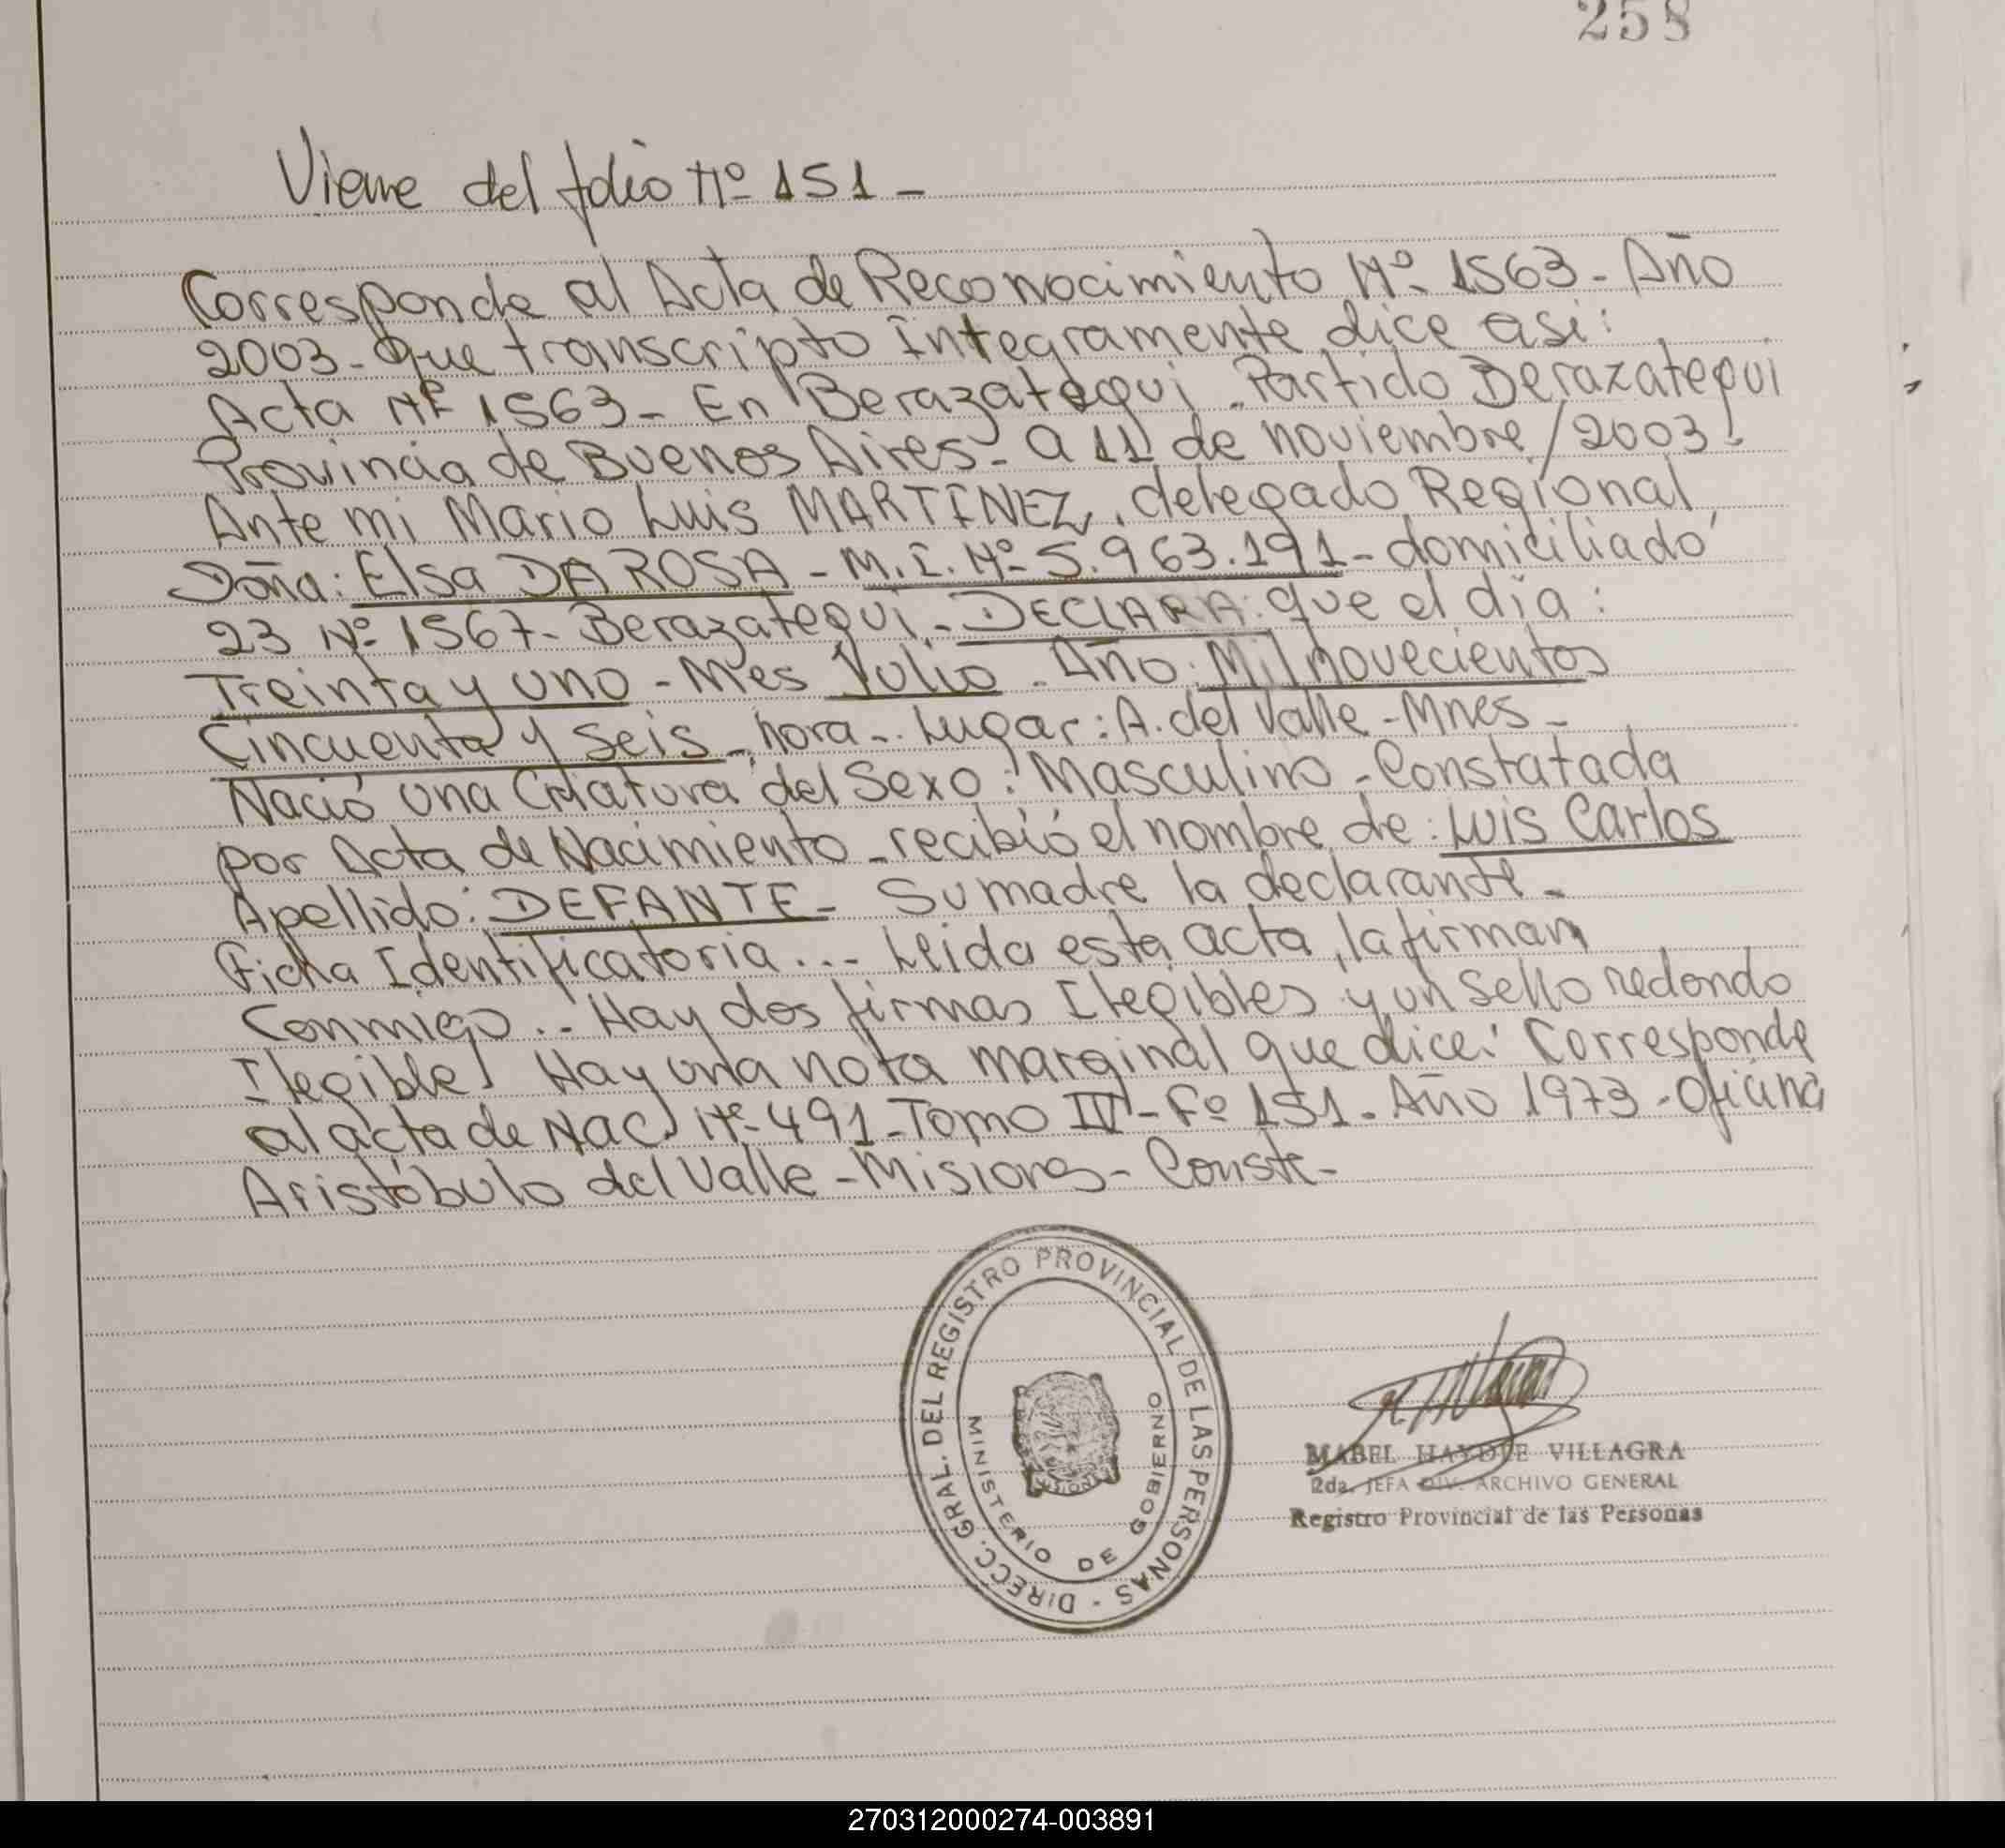 258
Viene del folio Nº 151 -
Corresponde al Acta de Reconocimiento Nº 1563 - Año
2003 - que transcripto Integramente dice asi:
Acta Nº 1563 - En Berazategui - Partido Berazategui
Provincia de Buenos Aires - a 11 de noviembre/2003.
Ante mi Mario Luis MARTÍNEZ, delegado Regional
Doña: Elsa DA ROSA - M.I. Nº 5.963.191 - domiciliado
23 Nº 1567 - Berazategui - DECLARA: que el día:
Treinta y uno - Mes Julio - Año: Mil novecientos
Cincuenta y Seis - hora - . Lugar: A. del Valle - Mnes -
Nació una Criatura del Sexo: Masculino - Constatada
por Acta de Nacimiento - recibió el nombre de: Luis Carlos
Apellido: DEFANTE - Su madre la declarante -
Ficha Identificatoria ... Leida esta acta, la firman
Conmigo .. Hay dos firmas Ilegibles y un Sello redondo
Ilegible. Hay una nota marginal que dice: Corresponde
al acta de Nac. Nº 491 - Tomo IV - Fº 151 - Año 1973 - Oficina
Aristóbulo del Valle - Misiones - Conste -
DIRECC. GRAL. DEL REGISTRO PROVINCIAL DE LAS PERSONAS -
MINISTERIO DE GOBIERNO
MISIONES
MABEL HAYDEE VILLAGRA
2da. JEFA DIV. ARCHIVO GENERAL
Registro Provincial de las Personas
270312000274-003891